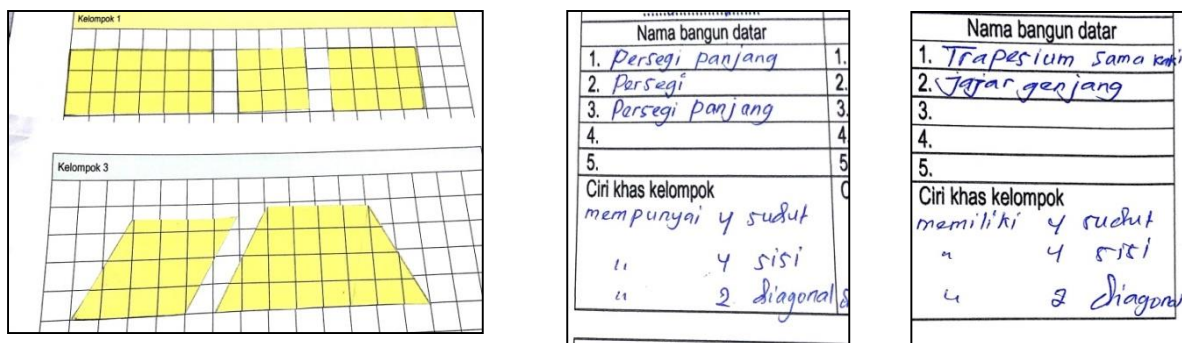 Kelompok 1
Kelompok 3
Nama bangun datar
1. Persegi panjang
1.
2. Persegi
2.
3. Persegi panjang
3.
4.
4
5.
5
Ciri khas kelompok
C
mempunyai 4 sudut
" 4 sisi
" 2 diagonal
Nama bangun datar
1. Trapesium sama kaki
2. Jajar genjang
3.
4.
5.
Ciri khas kelompok
memiliki 4 sudut
" 4 sisi
" 2 diagonal